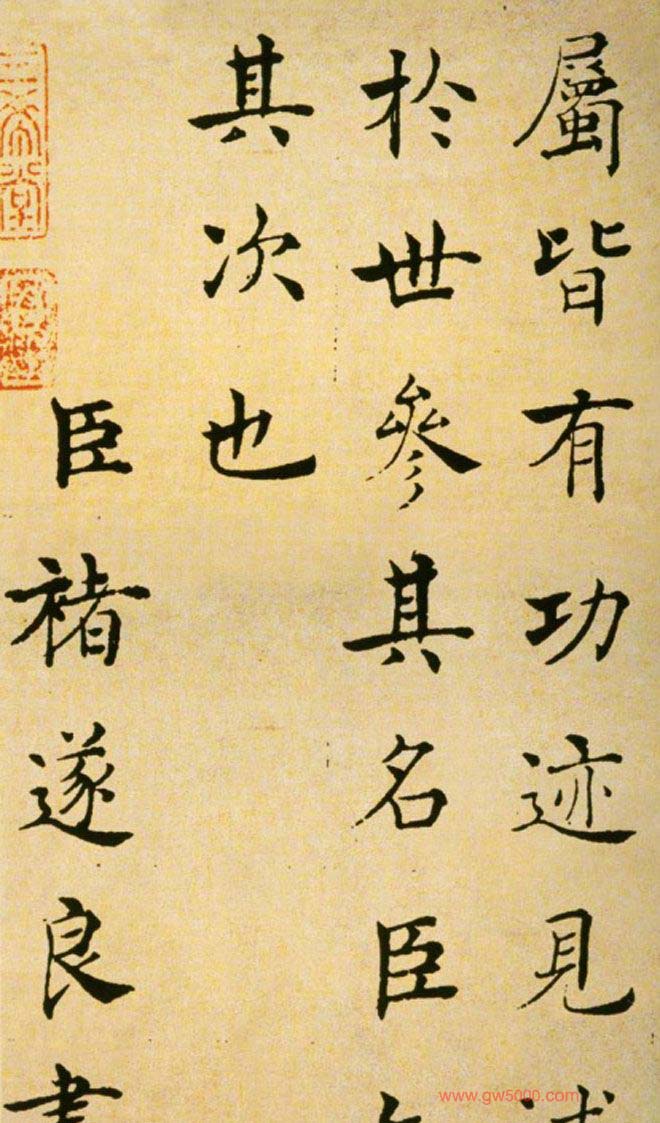 屬皆有功迹見
於世參其名臣
其次也
臣褚遂良書
三希堂
www.gw5000.com